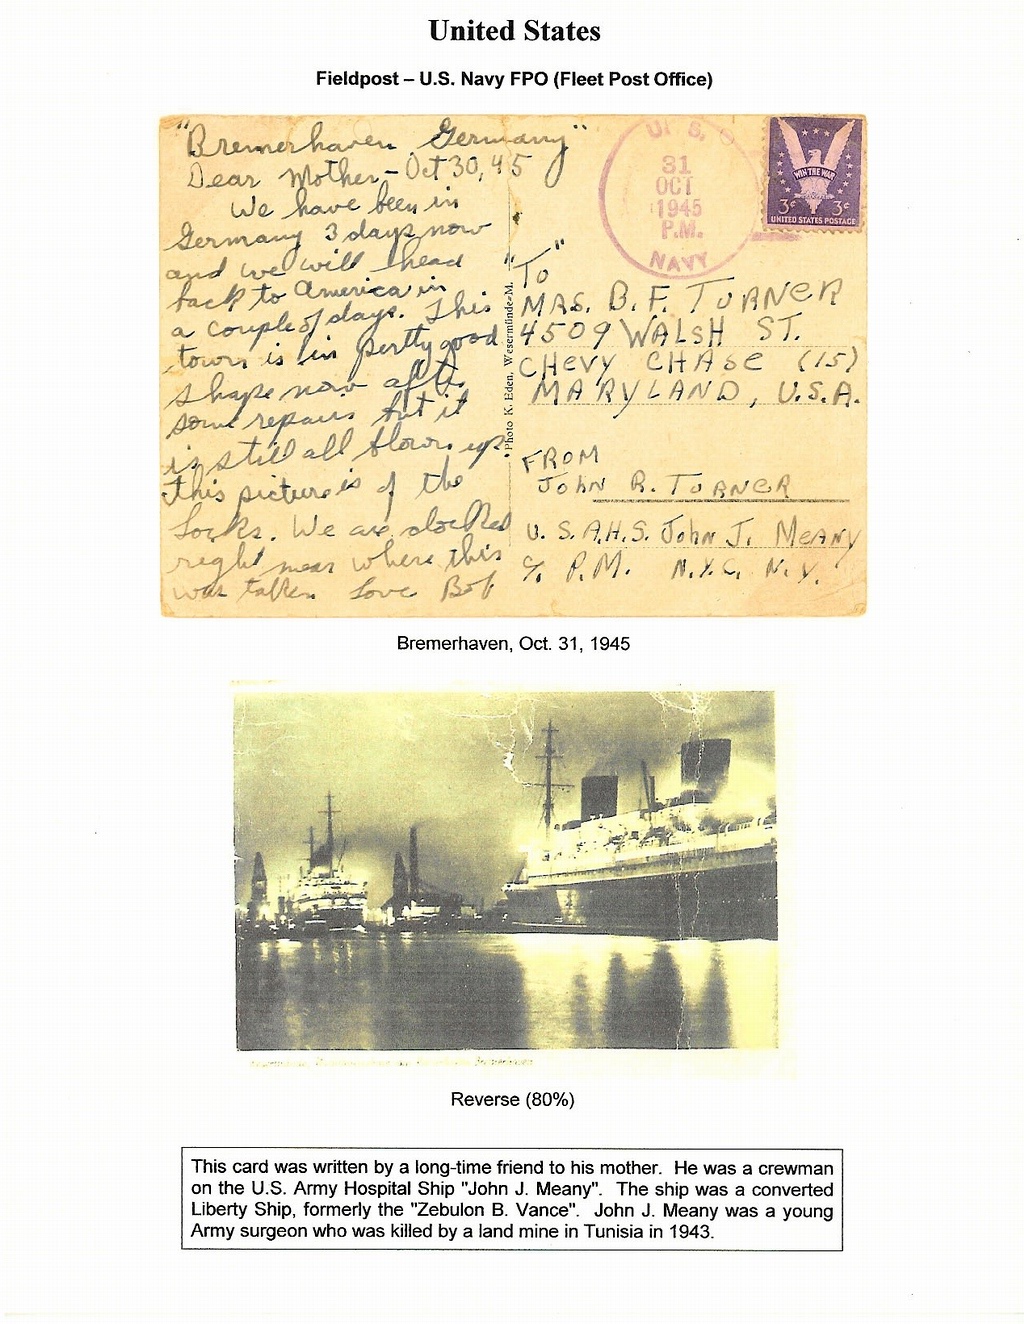 United States
Fieldpost – U.S. Navy FPO (Fleet Post Office)
"Bremerhaven Germany"
Dear Mother – Oct 30, 45
We have been in
Germany 3 days now
and we will head
back to America in
a couple of days. This
town is in pertty good
shape now after
some repairs but it
is still all blown up.
This picture is of the
Locks. We are docked
right near where this
was taken Love Bob
Photo K. Eden, Wesermünde-M.
U. S.
31
OCT
1945
P.M.
NAVY
WIN THE WAR
3¢ 3¢
UNITED STATES POSTAGE
"To"
MRS. B. F. TURNER
4509 WALSH ST.
CHEVY CHASE (15)
MARYLAND, U.S.A.
FROM
JOHN R. TURNER
U. S. A.H.S. John J. MEANY
% P.M. N.Y.C. N.Y.
Bremerhaven, Oct. 31, 1945
Reverse (80%)
This card was written by a long-time friend to his mother. He was a crewman
on the U.S. Army Hospital Ship "John J. Meany". The ship was a converted
Liberty Ship, formerly the "Zebulon B. Vance". John J. Meany was a young
Army surgeon who was killed by a land mine in Tunisia in 1943.